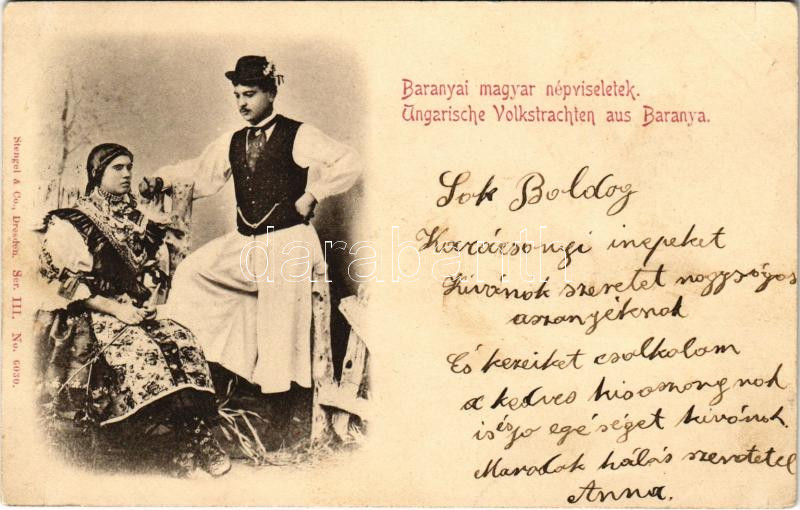 Baranyai magyar népviseletek.
Ungarische Volkstrachten aus Baranya.
Stengel & Co., Dresden. Ser. III. No. 6030.
Sok Boldog
Karácsongi inepeket
Kivánok szeretet nogysógos
aszonyéknok
És kezeiket csolkolom
a kedves kisoszongnok
is és jo egéséget kivánok.
Marodok hálás szeretetel
Anna.
darabanth